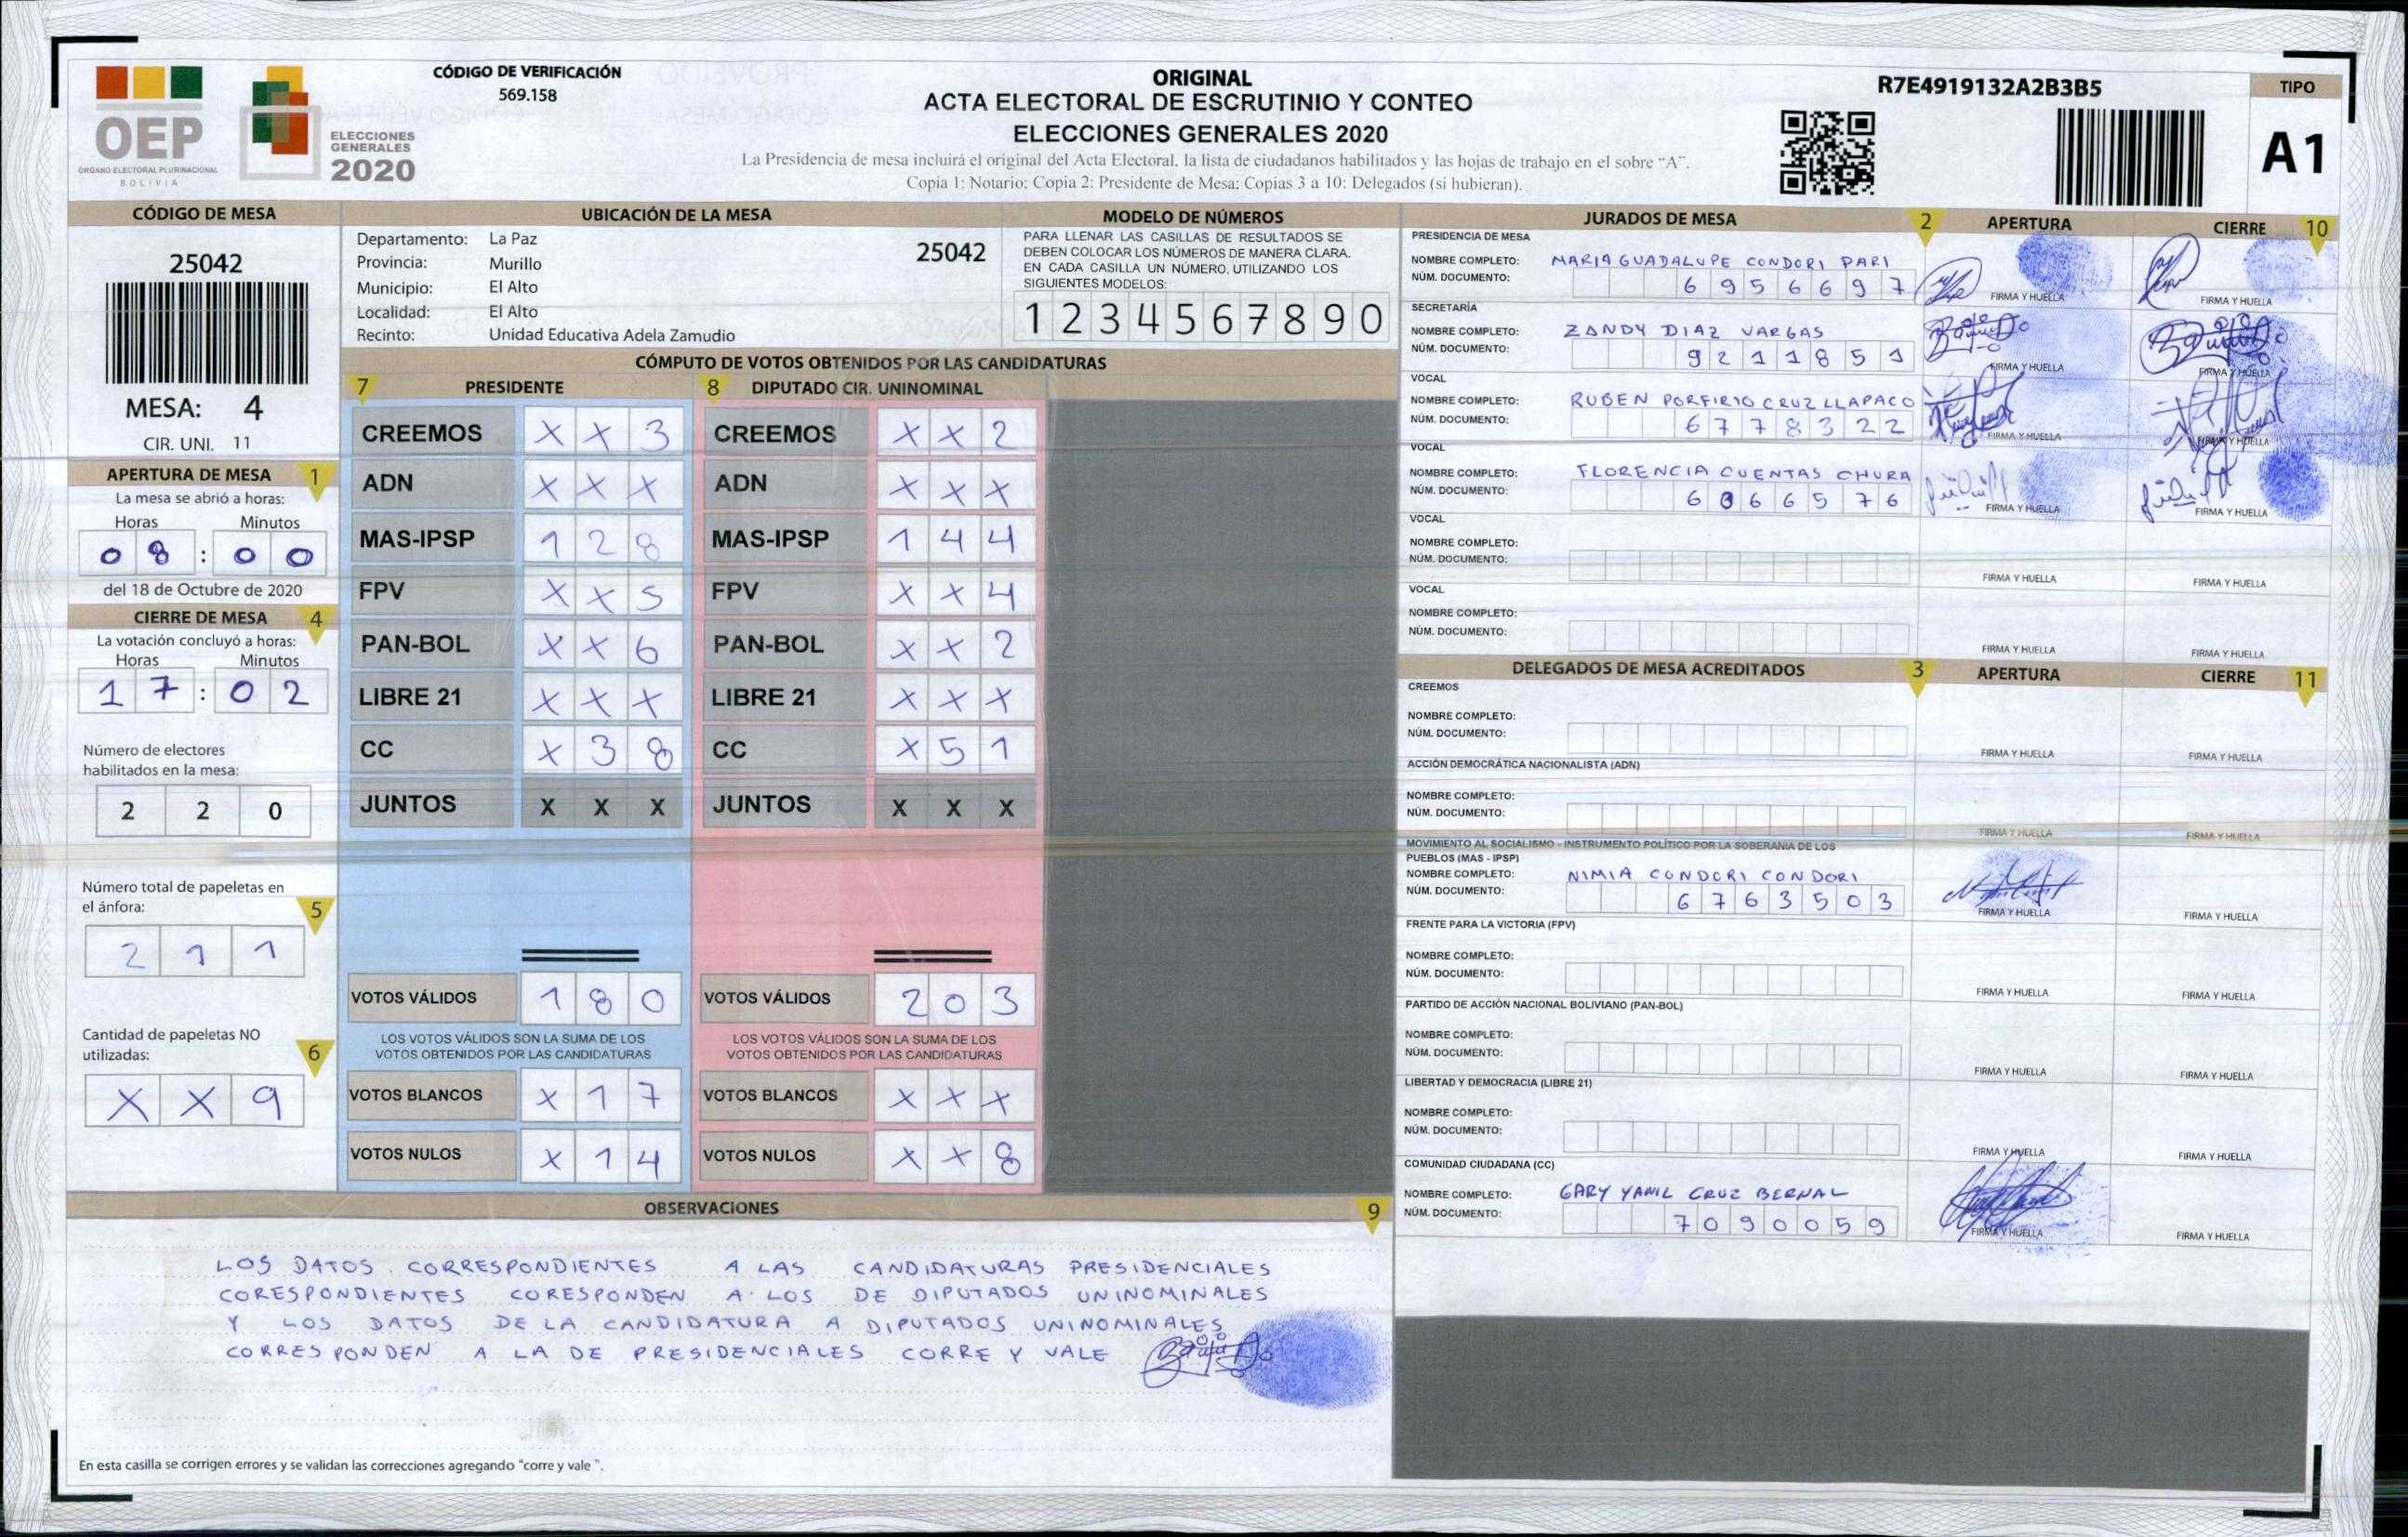 OEP
ÓRGANO ELECTORAL PLURINACIONAL
BOLIVIA
ELECCIONES
GENERALES
2020
CÓDIGO DE VERIFICACIÓN
569.158
ORIGINAL
ACTA ELECTORAL DE ESCRUTINIO Y CONTEO
ELECCIONES GENERALES 2020
La Presidencia de mesa incluirá el original del Acta Electoral, la lista de ciudadanos habilitados y las hojas de trabajo en el sobre "A".
Copia 1: Notario; Copia 2: Presidente de Mesa; Copias 3 a 10: Delegados (si hubieran).
R7E4919132A2B3B5
TIPO
A1
CÓDIGO DE MESA
25042
MESA: 4
CIR. UNI. 11
APERTURA DE MESA 1
La mesa se abrió a horas:
Horas Minutos
0 8 : 0 0
del 18 de Octubre de 2020
CIERRE DE MESA 4
La votación concluyó a horas:
Horas Minutos
1 7 : 0 2
Número de electores
habilitados en la mesa:
2 2 0
Número total de papeletas en
el ánfora: 5
2 1 1
Cantidad de papeletas NO
utilizadas: 6
X X 9
UBICACIÓN DE LA MESA
Departamento: La Paz 25042
Provincia: Murillo
Municipio: El Alto
Localidad: El Alto
Recinto: Unidad Educativa Adela Zamudio
MODELO DE NÚMEROS
PARA LLENAR LAS CASILLAS DE RESULTADOS SE
DEBEN COLOCAR LOS NÚMEROS DE MANERA CLARA.
EN CADA CASILLA UN NÚMERO, UTILIZANDO LOS
SIGUIENTES MODELOS:
1 2 3 4 5 6 7 8 9 0
CÓMPUTO DE VOTOS OBTENIDOS POR LAS CANDIDATURAS
7 PRESIDENTE 8 DIPUTADO CIR. UNINOMINAL
CREEMOS X X 3 CREEMOS X X 2
ADN X X X ADN X X X
MAS-IPSP 1 2 8 MAS-IPSP 1 4 4
FPV X X 5 FPV X X 4
PAN-BOL X X 6 PAN-BOL X X 2
LIBRE 21 X X X LIBRE 21 X X X
CC X 3 8 CC X 5 1
JUNTOS X X X JUNTOS X X X
VOTOS VÁLIDOS 1 8 0 VOTOS VÁLIDOS 2 0 3
LOS VOTOS VÁLIDOS SON LA SUMA DE LOS LOS VOTOS VÁLIDOS SON LA SUMA DE LOS
VOTOS OBTENIDOS POR LAS CANDIDATURAS VOTOS OBTENIDOS POR LAS CANDIDATURAS
VOTOS BLANCOS X 1 7 VOTOS BLANCOS X X X
VOTOS NULOS X 1 4 VOTOS NULOS X X 8
OBSERVACIONES 9
LOS DATOS CORRESPONDIENTES A LAS CANDIDATURAS PRESIDENCIALES
CORESPONDIENTES CORESPONDEN A LOS DE DIPUTADOS UNINOMINALES
Y LOS DATOS DE LA CANDIDATURA A DIPUTADOS UNINOMINALES
CORRESPONDEN A LA DE PRESIDENCIALES CORRE Y VALE
En esta casilla se corrigen errores y se validan las correcciones agregando "corre y vale ".
JURADOS DE MESA 2 APERTURA CIERRE 10
PRESIDENCIA DE MESA
NOMBRE COMPLETO: MARIA GUADALUPE CONDORI PARI
NÚM. DOCUMENTO: 6 9 5 6 6 9 7
FIRMA Y HUELLA FIRMA Y HUELLA
SECRETARÍA
NOMBRE COMPLETO: ZANDY DIAZ VARGAS
NÚM. DOCUMENTO: 9 2 1 1 8 5 1
FIRMA Y HUELLA FIRMA Y HUELLA
VOCAL
NOMBRE COMPLETO: RUBEN PORFIRIO CRUZ LLAPACO
NÚM. DOCUMENTO: 6 7 7 8 3 2 2
FIRMA Y HUELLA FIRMA Y HUELLA
VOCAL
NOMBRE COMPLETO: FLORENCIA CUENTAS CHURA
NÚM. DOCUMENTO: 6 0 6 6 5 7 6
FIRMA Y HUELLA FIRMA Y HUELLA
VOCAL
NOMBRE COMPLETO:
NÚM. DOCUMENTO:
FIRMA Y HUELLA FIRMA Y HUELLA
VOCAL
NOMBRE COMPLETO:
NÚM. DOCUMENTO:
FIRMA Y HUELLA FIRMA Y HUELLA
DELEGADOS DE MESA ACREDITADOS 3 APERTURA CIERRE 11
CREEMOS
NOMBRE COMPLETO:
NÚM. DOCUMENTO:
FIRMA Y HUELLA FIRMA Y HUELLA
ACCIÓN DEMOCRÁTICA NACIONALISTA (ADN)
NOMBRE COMPLETO:
NÚM. DOCUMENTO:
FIRMA Y HUELLA FIRMA Y HUELLA
MOVIMIENTO AL SOCIALISMO - INSTRUMENTO POLÍTICO POR LA SOBERANIA DE LOS
PUEBLOS (MAS - IPSP)
NOMBRE COMPLETO: NIMIA CONDORI CONDORI
NÚM. DOCUMENTO: 6 7 6 3 5 0 3
FIRMA Y HUELLA FIRMA Y HUELLA
FRENTE PARA LA VICTORIA (FPV)
NOMBRE COMPLETO:
NÚM. DOCUMENTO:
FIRMA Y HUELLA FIRMA Y HUELLA
PARTIDO DE ACCIÓN NACIONAL BOLIVIANO (PAN-BOL)
NOMBRE COMPLETO:
NÚM. DOCUMENTO:
FIRMA Y HUELLA FIRMA Y HUELLA
LIBERTAD Y DEMOCRACIA (LIBRE 21)
NOMBRE COMPLETO:
NÚM. DOCUMENTO:
FIRMA Y HUELLA FIRMA Y HUELLA
COMUNIDAD CIUDADANA (CC)
NOMBRE COMPLETO: GARY YANIL CRUZ BERNAL
NÚM. DOCUMENTO: 7 0 9 0 0 5 9
FIRMA Y HUELLA FIRMA Y HUELLA